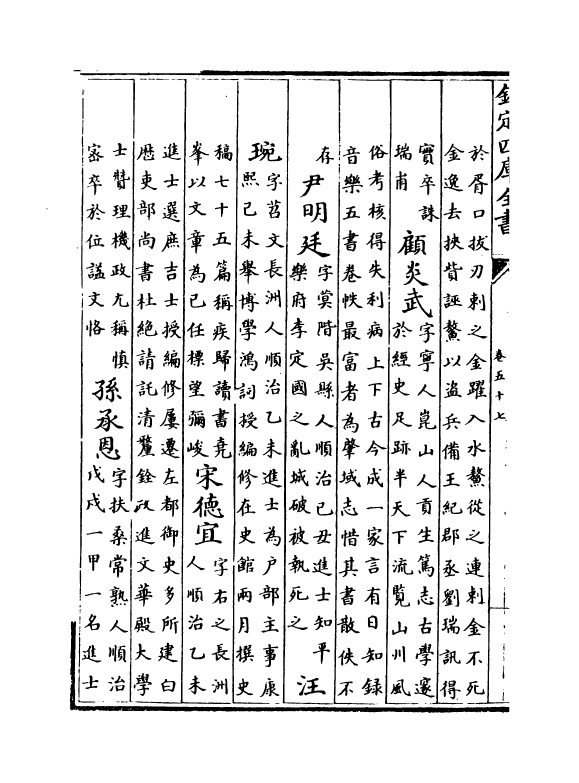 欽定四庫全書
卷五十七
於胥口拔刃刺之金躍入水鰲從之連刺金不死
金逸去挾貲誣鰲以盜兵備王紀郡丞劉瑞訊得
實卒誅
瑞甫
顧炎武
字寧人崑山人貢生篤志古學邃
於經史足跡半天下流覽山川風
俗考核得失利病上下古今成一家言有日知録
音樂五書卷帙最富者為肇域志惜其書散佚不
存
尹明廷
字蓂階吳縣人順治已丑進士知平
樂府李定國之亂城破被執死之
汪
琬
字苕文長洲人順治乙未進士為户部主事康
熙己未舉博學鴻詞授編修在史館兩月撰史
稿七十五篇稱疾歸讀書堯
峯以文章為已任標望彌峻
宋德宜
字右之長洲
人順治乙未
進士選庶吉士授編修屢遷左都御史多所建白
歴吏部尚書杜絶請託清釐銓政進文華殿大學
士贊理機政尤稱慎
宻卒於位謚文恪
孫承恩
字扶桑常熟人順治
戊戌一甲一名進士